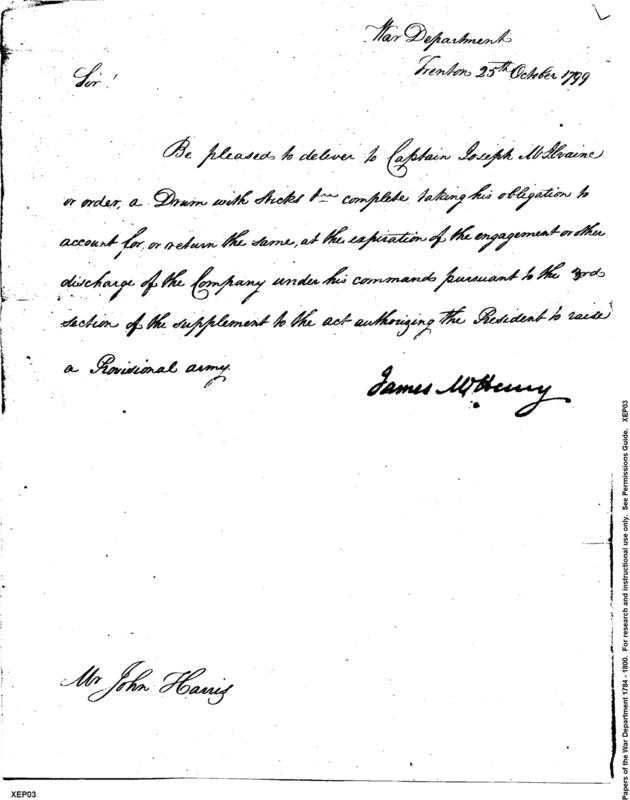 War Department
Trenton 25th October 1799
Sir!
Be pleased to deliver to Captain Joseph McIlvaine
or order, a Drum with sticks &ca complete taking his obligation to
account for, or return the same, at the expiration of the engagement or other
discharge of the Company under his command pursuant to the 3rd
section of the supplement to the act authorizing the President to raise
a Provisional army.
James McHenry
Mr John Harris
XEP03
Papers of the War Department 1784 - 1800. For research and instructional use only. See Permissions Guide. XEP03